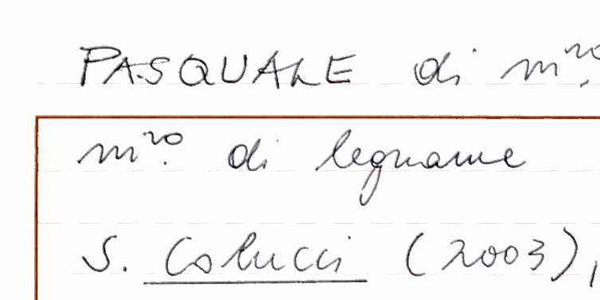 PASQUALE di m.ro
m.ro di legname
S. Colucci (2003),